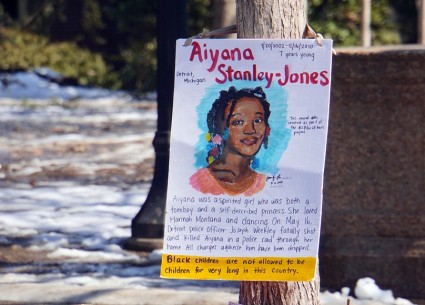 Aiyana
Stanley-Jones
7 years young
Detroit,
Michigan
Aiyana was a spirited girl who was both a
tomboy and a self described princess. She loved
Hannah Montana and dancing. On May 16,
Detroit police officer Joseph Weekley fatally shot
and killed Aiyana in a police raid through her
home. All charges against him have been dropped.
Black children are not allowed to be
Children for very long in this country.